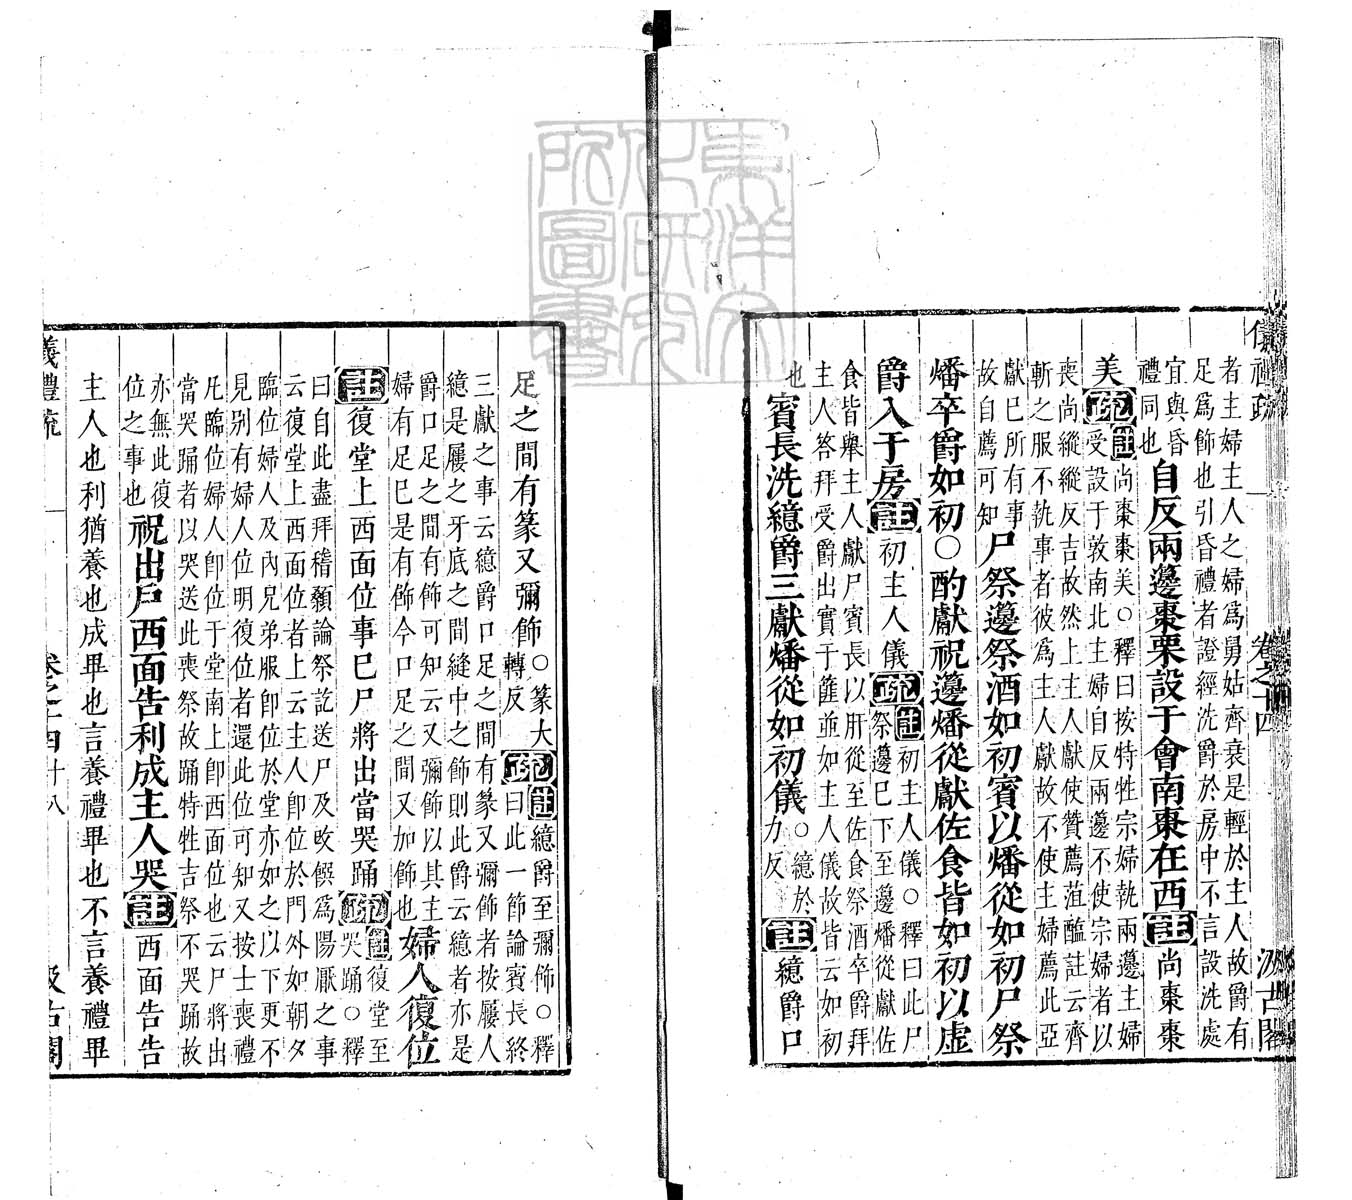 儀禮疏　卷之十四　汲古閣
者主婦主人之婦爲舅姑齊衰是輕於主人故爵有
足爲飾也引昏禮者證經洗爵於房中不言設洗處
宜與昏
禮同也
自反兩籩棗栗設于會南棗在西註尚棗棗
美疏
註尚棗棗美○釋曰按特牲宗婦執兩籩主婦
受設于敦南北主婦自反兩籩不使宗婦者以
喪尚縱縱反吉故然上主人獻使贊薦菹醢註云齊
斬之服不執事者彼爲主人獻故不使主婦薦此亞
獻已所有事
故自薦可知
尸祭籩祭酒如初賓以燔從如初尸祭
燔卒爵如初○酌獻祝籩燔從獻佐食皆如初以虛
爵入于房註初主人儀疏
註初主人儀○釋曰此尸
祭籩已下至籩燔從獻佐
食皆舉主人獻尸賓長以肝從至佐食祭酒卒爵拜
主人答拜受爵出實于篚並如主人儀故皆云如初
也
賓長洗繶爵三獻燔從如初儀○繶於
力反
註繶爵口
足之間有篆又彌飾○篆大
轉反
疏
註繶爵至彌飾○釋
曰此一節論賓長終
三獻之事云繶爵口足之間有篆又彌飾者按屨人
繶是屨之牙底之間縫中之飾則此爵云繶者亦是
爵口足之間有飾可知云又彌飾以其主
婦有足已是有飾今口足之間又加飾也
婦人復位
註復堂上西面位事已尸將出當哭踊疏
註復堂至
哭踊○釋
曰自此盡拜稽顙論祭訖送尸及改饌爲陽厭之事
云復堂上西面位者上云主人卽位於門外如朝夕
臨位婦人及內兄弟服卽位於堂亦如之以下更不
見別有婦人位明復位者還此位可知又按士喪禮
凡臨位婦人卽位于堂南上卽西面位也云尸將出
當哭踊者以哭送此喪祭故踊特牲吉祭不哭踊故
亦無此復
位之事也
祝出戶西面告利成主人哭註西面告告
主人也利猶養也成畢也言養禮畢也不言養禮畢
儀禮疏　卷之十四　十八　汲古閣
東洋文化研究所圖書